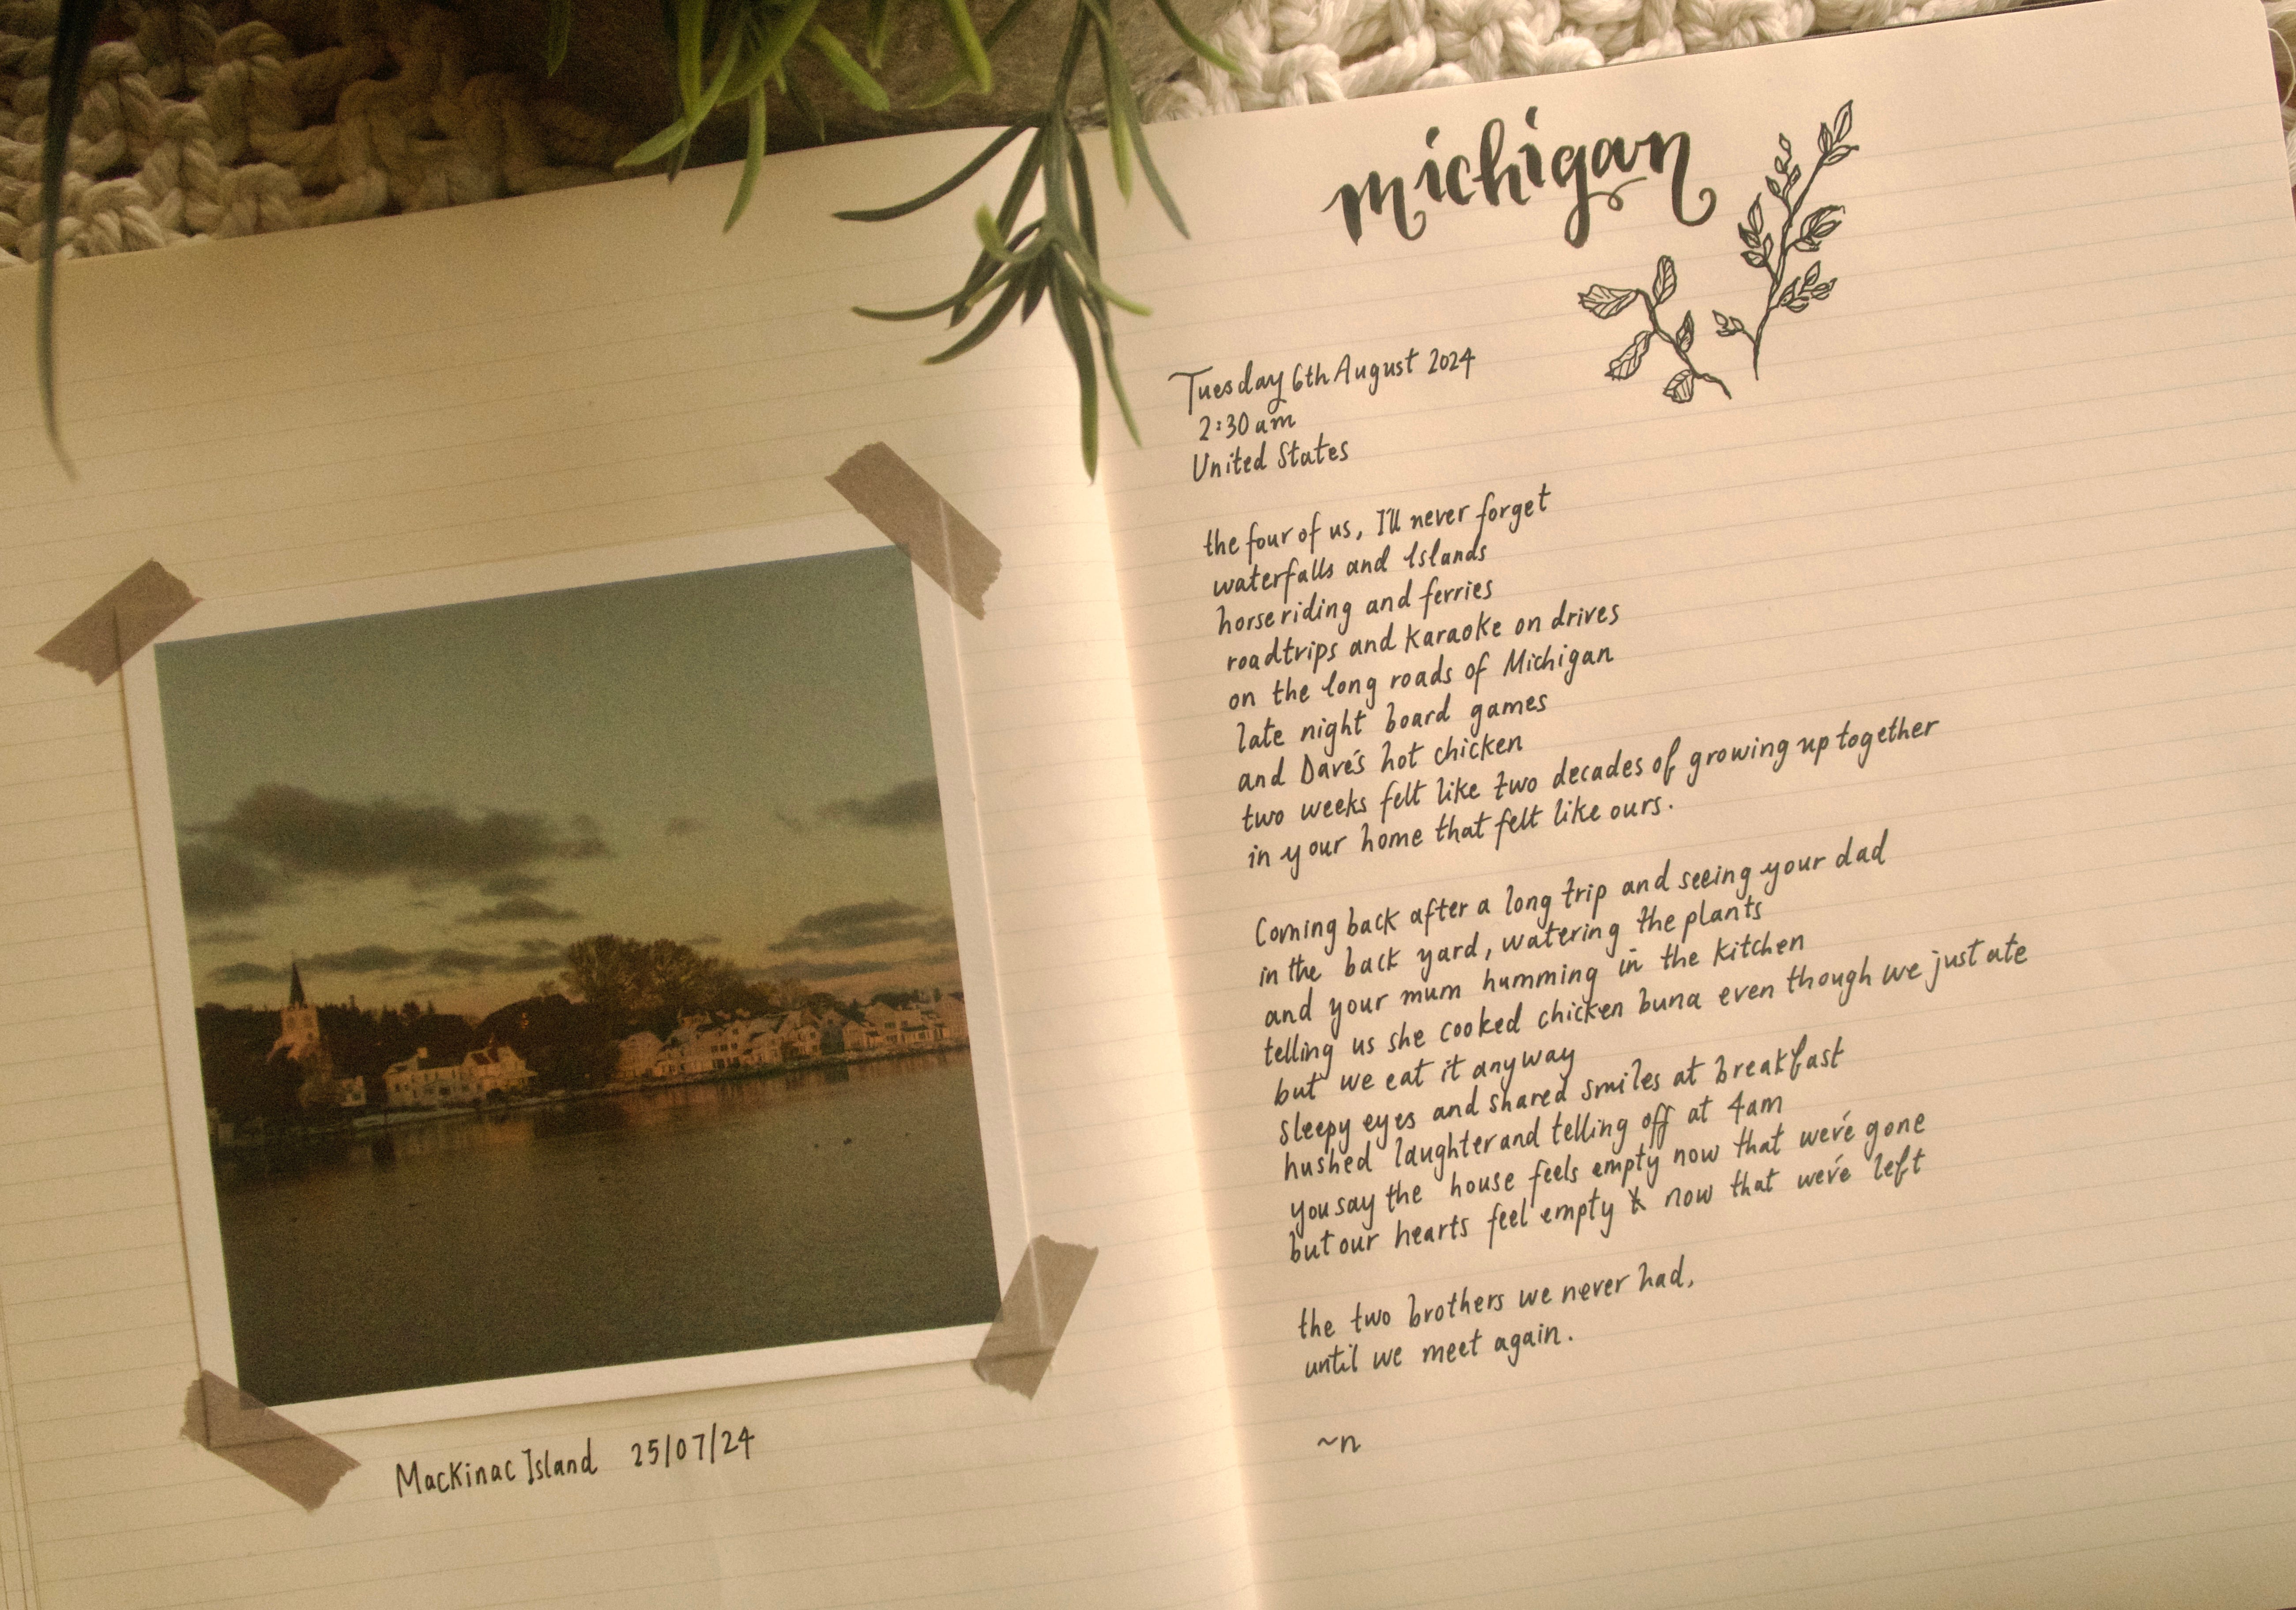 Mackinac Island 25/07/24
michigan
Tuesday 6th August 2024
2:30am
United States
the four of us, I'll never forget
waterfalls and Islands
horseriding and ferries
roadtrips and karaoke on drives
on the long roads of Michigan
late night board games
and Dave's hot chicken
two weeks felt like two decades of growing up together
in your home that felt like ours.
Coming back after a long trip and seeing your dad
in the back yard, watering the plants
and your mum humming in the kitchen
telling us she cooked chicken buna even though we just ate
but we eat it anyway
sleepy eyes and shared smiles at breakfast
hushed laughter and telling off at 4am
you say the house feels empty now that we've gone
but our hearts feel empty now that we've left
the two brothers we never had,
until we meet again.
~n